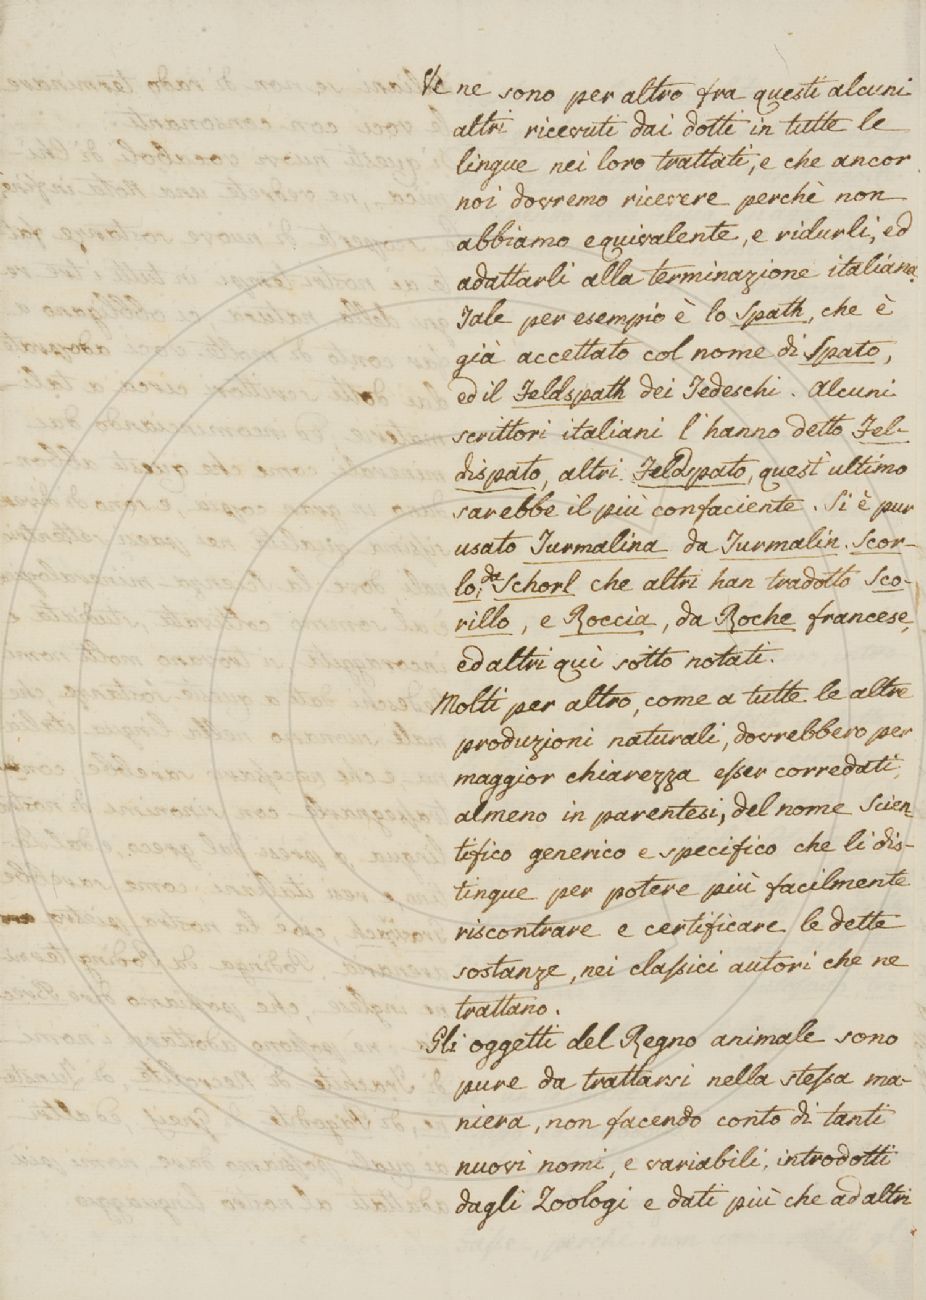 Ve ne sono per altro fra questi alcuni
altri ricevuti dai dotti in tutte le
lingue nei loro trattati, e che ancor
noi dovremo ricevere perchè non
abbiamo equivalente, e ridurli, ed
adattarli alla terminazione italiana.
Tale per esempio è lo Spath, che è
già accettato col nome di Spato,
ed il Feldspath dei Tedeschi. Alcuni
scrittori italiani l'hanno detto Fel-
dispato, altri Feldspato, quest'ultimo
sarebbe il più confaciente. Si è pur
usato Turmalina da Turmalin. Scor-
lo, da Schorl che altri han tradotto Sco-
rillo, e Roccia, da Roche francese,
ed altri quì sotto notati.
Molti per altro, come a tutte le altre
produzioni naturali, dovrebbero per
maggior chiarezza esser corredati,
almeno in parentesi, del nome Scien-
tifico generico e specifico che li dis-
tingue per potere più facilmente
riscontrare e certificare le dette
sostanze, nei classici autori che ne
trattano.
Gli oggetti del Regno animale sono
pure da trattarsi nella stessa ma-
niera, non facendo conto di tanti
nuovi nomi, e variabili, introdotti
dagli Zoologi e dati più che ad altri